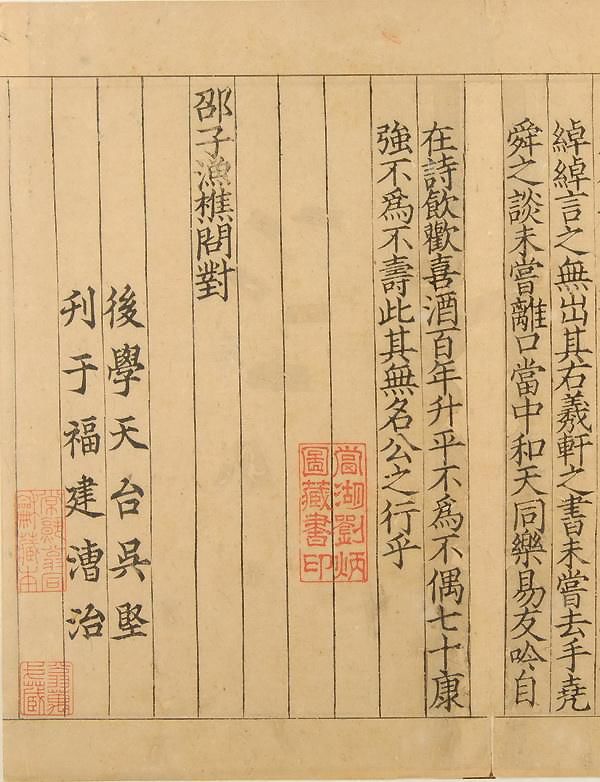 綽綽言之無出其右羲軒之書未嘗去手堯
舜之談未嘗離口當中和天同樂易友吟自
在詩飲歡喜酒百年升平不為不偶七十康
強不為不壽此其無名公之行乎
邵子漁樵問對
後學天台吳堅
刋于福建漕治
當湖劉炳
圖藏書印